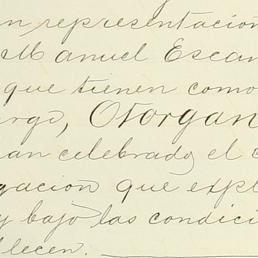 n representacion
Manuel Escan
que tienen como
argo, Otorgan
an celebrado el c
gacion que expl
y bajo las condici
llecen.